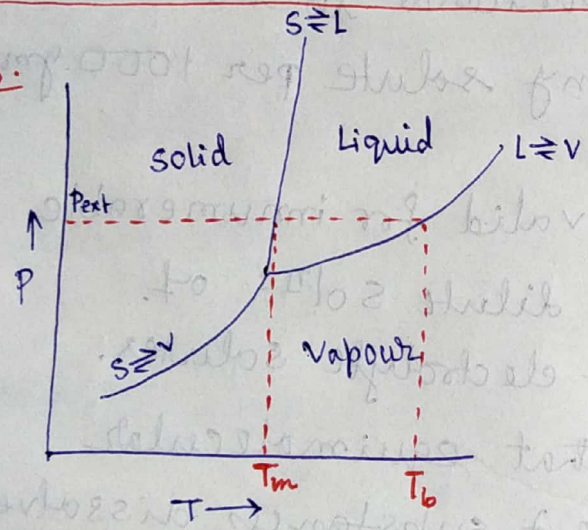 S⇌L
Solid
Liquid
L⇌V
Pext
↑
P
S⇌V
Vapour
Tm
Tb
T→